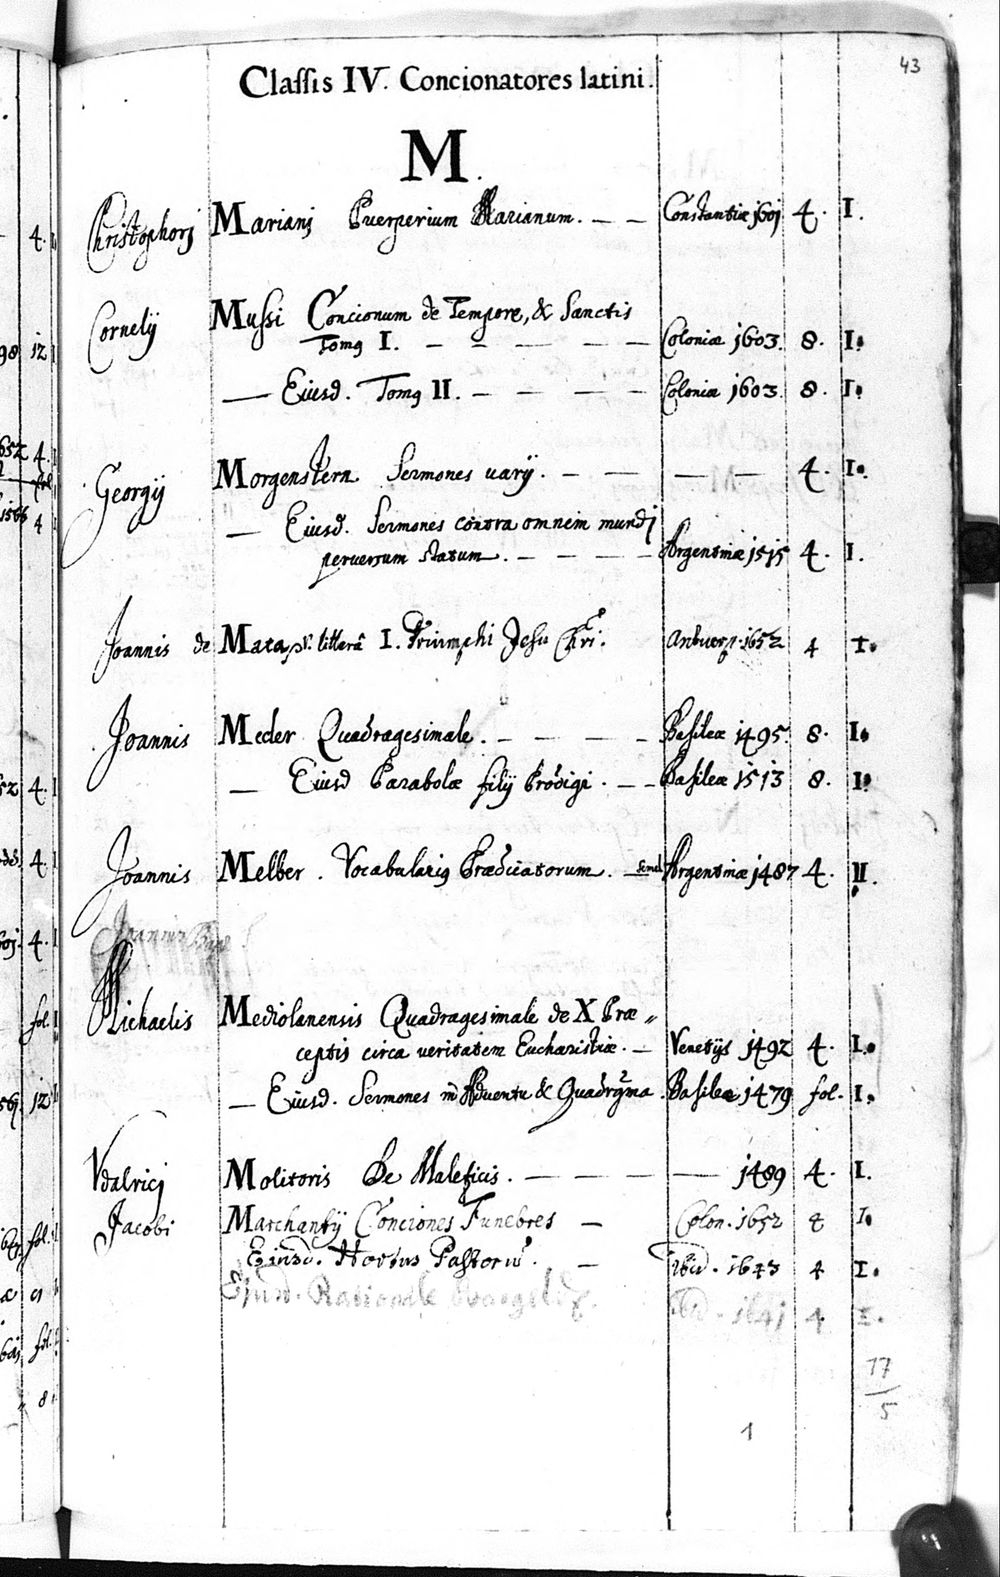 43
Classis IV. Concionatores latini.
M.
Christophorj Mariani Puerperium Marianum. Constantiæ 1601 4. I.
Cornelij Mussi Concionum de Tempore, & Sanctis
Tomg I. Coloniæ 1603. 8. I.
Eiusd. Tomg II. Coloniæ 1603. 8. I.
Georgij Morgenstern Sermones varij. 4. I.
Eiusd. Sermones contra omnem mundi
peruersum statum. Argentinæ 1515 4. I.
Joannis de Mata, littera I. Triumphi Jesu Chri. Antuerp. 1652 4 I.
Joannis Meder Quadragesimale. Basileæ 1495. 8. I.
Eiusd Parabolæ filij Prodigi. Basileæ 1513 8. I.
Joannis Melber. Vocabularig Prædicatorum. Argentinæ 1487 4. II.
Joannis
Michaelis Mediolanensis Quadragesimale de X Præ〃
ceptis circa veritatem Eucharistiæ. Venetijs 1492 4. I.
Eiusd. Sermones in Aduentu & Quadrgma. Basileæ 1479 fol. I.
Vdalricj Molitoris De Maleficis. 1489 4. I.
Jacobi Marchantij Conciones Funebres Colon. 1652 4 I.
Eiusd. Hortus Pastorū. ibid. 1643 4 I.
Eiusd. Rationale Evangeliz. ibid. 1641 4 I.
17
5
1